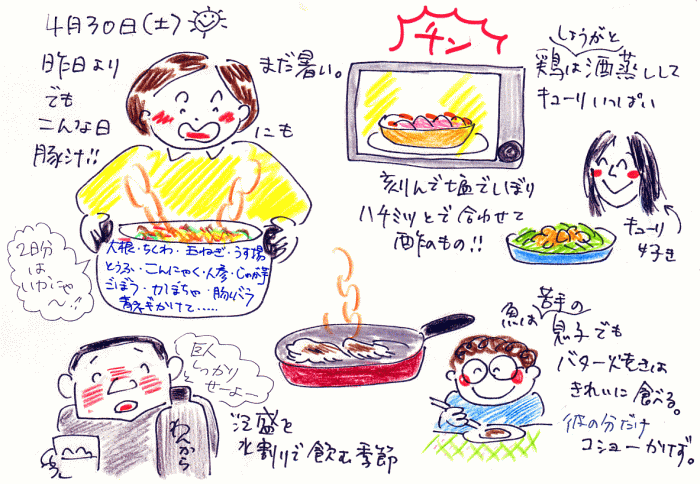 4月30日(土)
昨日より
まだ暑い。
でも
こんな日
にも
豚汁!!
2日分
は
いかにゃ
〜!!
大根・ちくわ・玉ねぎ・うす揚
とうふ・こんにゃく・人参・じゃが芋
ごぼう・かぼちゃ・豚バラ
青ネギかけて……
チン
しょうがと
鶏は酒蒸しして
キューリいっぱい
刻んで塩でしぼり
ハチミツとで合わせて
酢のもの!!
キューリ
好き
巨人
しっかり
せーよー
わんから
泡盛を
水割りで飲む季節
魚は苦手の
息子でも
バター焼きは
きれいに食べる。
彼の分だけ
コショーかけず。